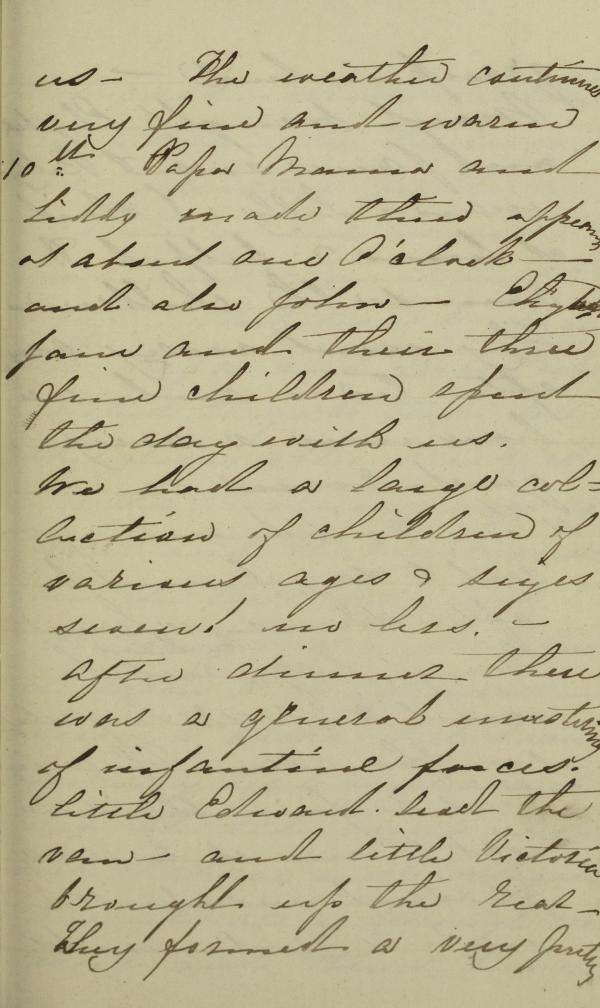 us - The weather continues
very fine and warm
10th Papa Mama and
Liddy made their appearing
at about one O'clock -
and also John -
Jane and their three
fine children spent
the day with us.
We had a large col=
lection of children of
various ages & sizes
seven! no less. -
after dinner there
was a general mustering
of infantine forces.
little Edward lead the
van - and little Victoria
brought up the rear -
They formed a very pretty